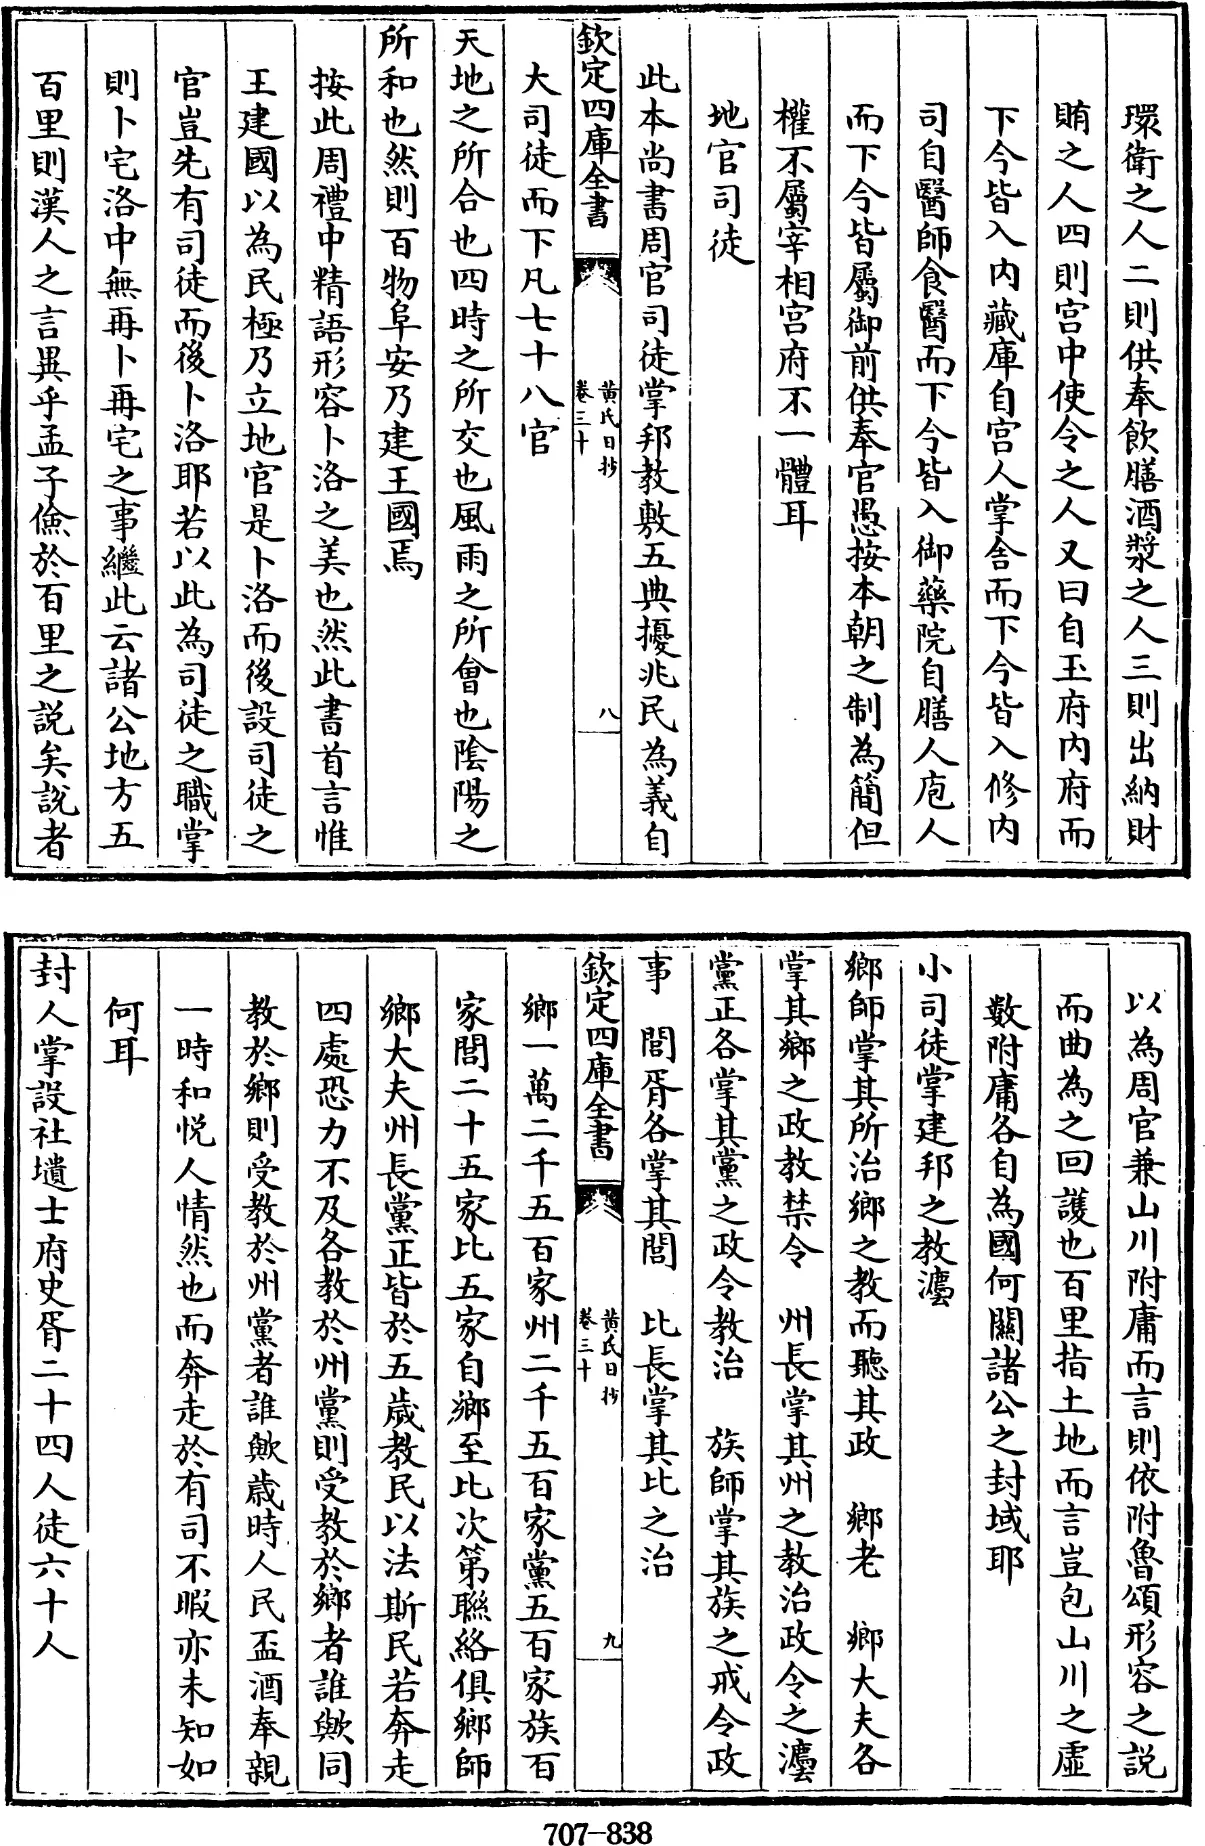 環衛之人二則供奉飲膳酒漿之人三則出納財
賄之人四則宫中使令之人又曰自玉府内府而
下今皆入内藏庫自宫人掌舍而下今皆入修内
司自醫師食醫而下今皆入御藥院自膳人庖人
而下今皆屬御前供奉官愚按本朝之制為簡但
權不屬宰相宫府不一體耳
地官司徒
此本尚書周官司徒掌邦教敷五典擾兆民為義自
欽定四庫全書
黄氏日抄
卷三十
八
大司徒而下凡七十八官
天地之所合也四時之所交也風雨之所會也陰陽之
所和也然則百物阜安乃建王國焉
按此周禮中精語形容卜洛之美也然此書首言惟
王建國以為民極乃立地官是卜洛而後設司徒之
官豈先有司徒而後卜洛耶若以此為司徒之職掌
則卜宅洛中無再卜再宅之事繼此云諸公地方五
百里則漢人之言異乎孟子儉於百里之説矣説者
以為周官兼山川附庸而言則依附魯頌形容之説
而曲為之回護也百里指土地而言豈包山川之虚
數附庸各自為國何關諸公之封域耶
小司徒掌建邦之教灋
鄉師掌其所治鄉之教而聽其政　鄉老　鄉大夫各
掌其鄉之政教禁令　州長掌其州之教治政令之灋
黨正各掌其黨之政令教治　族師掌其族之戒令政
事　閭胥各掌其閭　比長掌其比之治
欽定四庫全書
黄氏日抄
卷三十
九
鄉一萬二千五百家州二千五百家黨五百家族百
家閭二十五家比五家自鄉至比次第聯絡俱鄉師
鄉大夫州長黨正皆於五歲教民以法斯民若奔走
四處恐力不及各教於州黨則受教於鄉者誰歟同
教於鄉則受教於州黨者誰歟歲時人民盃酒奉親
一時和悦人情然也而奔走於有司不暇亦未知如
何耳
封人掌設社壝士府史胥二十四人徒六十人
707-838